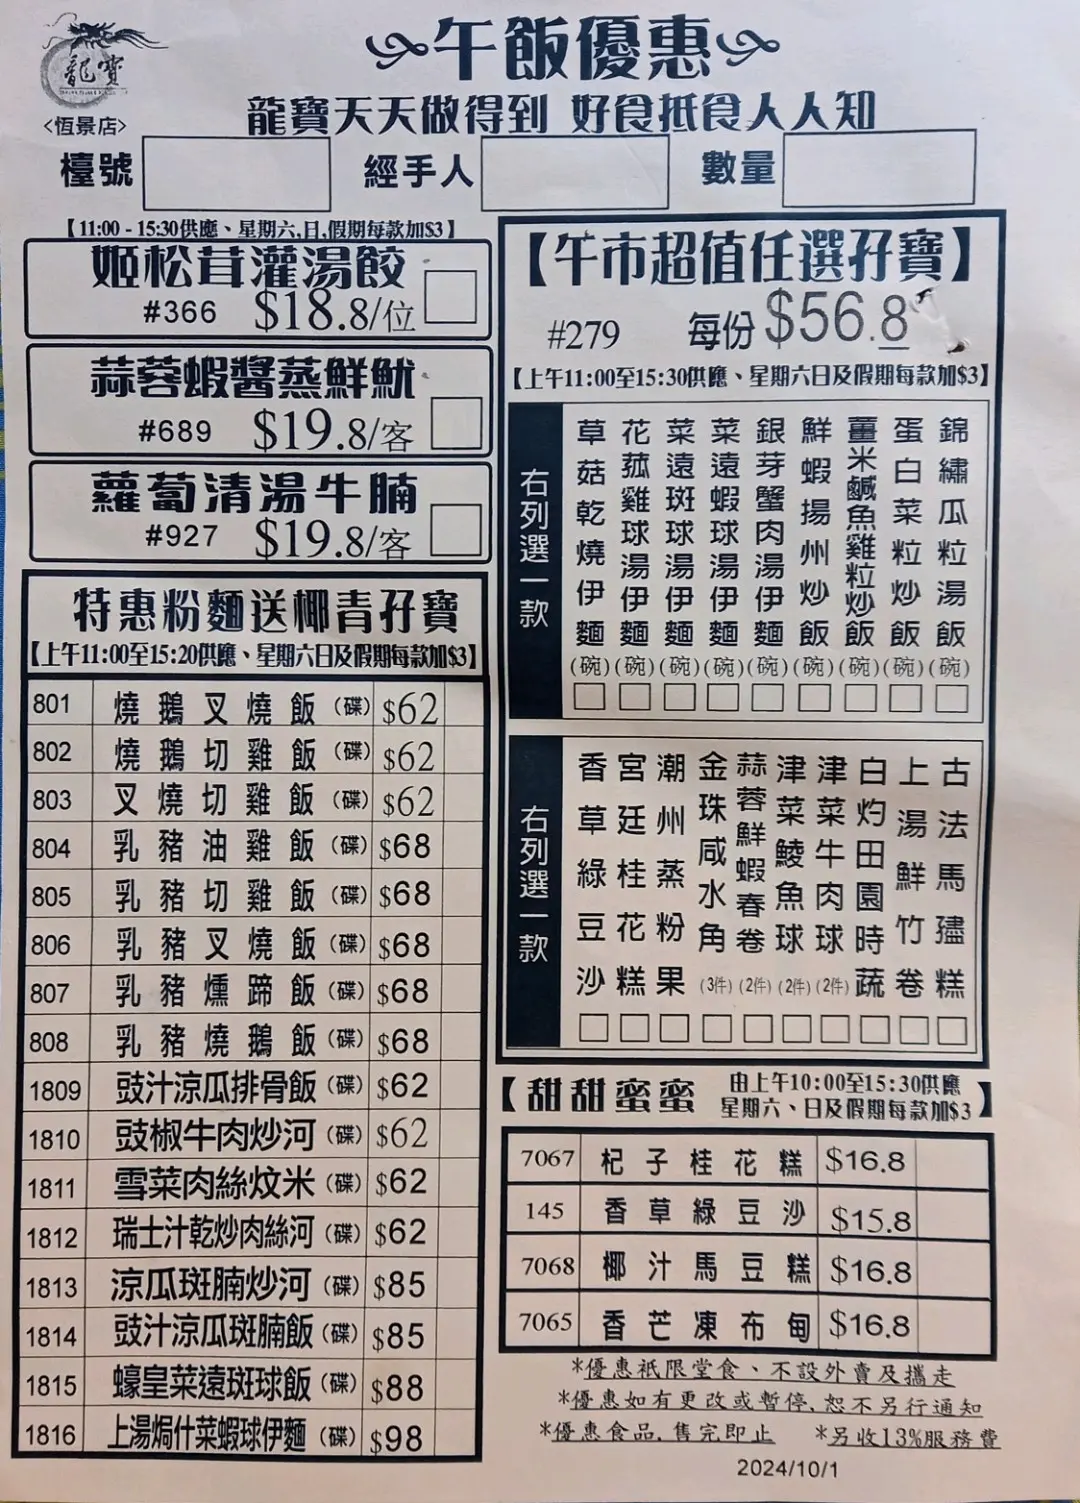 龍寶
<恆景店>
午飯優惠
龍寶天天做得到 好食抵食人人知
檯號
經手人
數量
【11:00 - 15:30供應、星期六,日,假期每款加$3】
姬松茸灌湯餃
#366 $18.8/位
蒜蓉蝦醬蒸鮮魷
#689 $19.8/客
蘿蔔清湯牛腩
#927 $19.8/客
特惠粉麵送椰青孖寶
【上午11:00至15:20供應、星期六日及假期每款加$3】
801 燒鵝叉燒飯(碟) $62
802 燒鵝切雞飯(碟) $62
803 叉燒切雞飯(碟) $62
804 乳豬油雞飯(碟) $68
805 乳豬切雞飯(碟) $68
806 乳豬叉燒飯(碟) $68
807 乳豬燻蹄飯(碟) $68
808 乳豬燒鵝飯(碟) $68
1809 豉汁涼瓜排骨飯(碟) $62
1810 豉椒牛肉炒河(碟) $62
1811 雪菜肉絲炆米(碟) $62
1812 瑞士汁乾炒肉絲河(碟) $62
1813 涼瓜斑腩炒河(碟) $85
1814 豉汁涼瓜斑腩飯(碟) $85
1815 蠔皇菜遠斑球飯(碟) $88
1816 上湯焗什菜蝦球伊麵(碟) $98
【午市超值任選孖寶】
#279 每份 $56.8
【上午11:00至15:30供應、星期六日及假期每款加$3】
右列選一款
草菇乾燒伊麵(碗)
花菰雞球湯伊麵(碗)
菜遠斑球湯伊麵(碗)
菜遠蝦球湯伊麵(碗)
銀芽蟹肉湯伊麵(碗)
鮮蝦揚州炒飯(碗)
薑米鹹魚雞粒炒飯(碗)
蛋白菜粒炒飯(碗)
錦繡瓜粒湯飯(碗)
右列選一款
香草綠豆沙
宮廷桂花糕
潮州蒸粉果
金珠咸水角(3件)
蒜蓉鮮蝦春卷(2件)
津菜鯪魚球(2件)
津菜牛肉球(2件)
白灼田園時蔬
上湯鮮竹卷
古法馬𤷪糕
【甜甜蜜蜜 由上午10:00至15:30供應
星期六、日及假期每款加$3】
7067 杞子桂花糕 $16.8
145 香草綠豆沙 $15.8
7068 椰汁馬豆糕 $16.8
7065 香芒凍布甸 $16.8
*優惠祇限堂食、不設外賣及攜走
*優惠如有更改或暫停,恕不另行通知
*優惠食品,售完即止 *另收13%服務費
2024/10/1